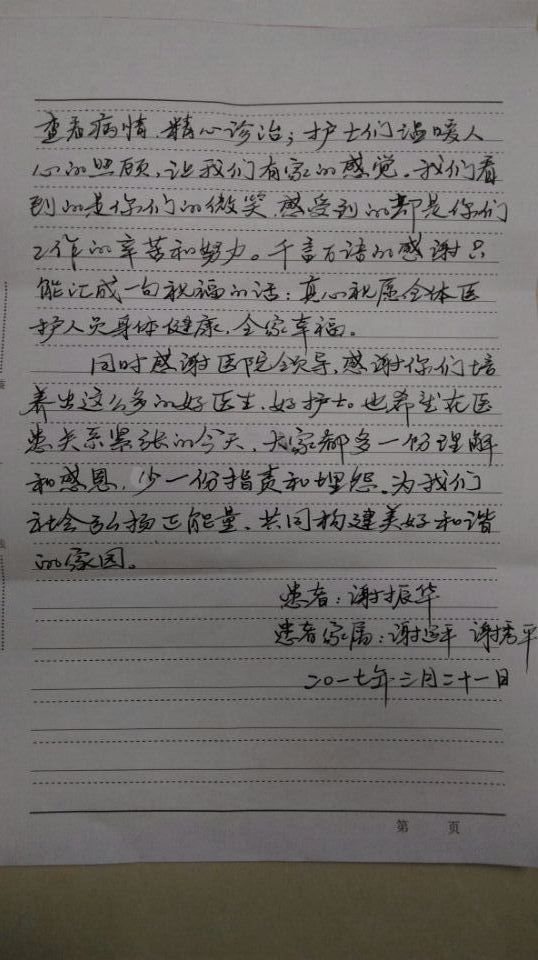 查看病情、精心诊治；护士们温暖人
心的照顾，让我们有家的感觉。我们看
到的是你们的微笑，感受到的都是你们
工作的辛苦和努力。千言万语的感谢只
能汇成一句祝福的话：真心祝愿全体医
护人员身体健康，全家幸福。
同时感谢医院领导，感谢你们培
养出这么多的好医生、好护士。也希望在医
患关系紧张的今天，大家都多一份理解
和感恩，少一份指责和埋怨。为我们
社会弘扬正能量，共同构建美好和谐
的家园。
患者：谢振华
患者家属：谢 平 谢秀平
二〇一七年三月二十一日
第 页